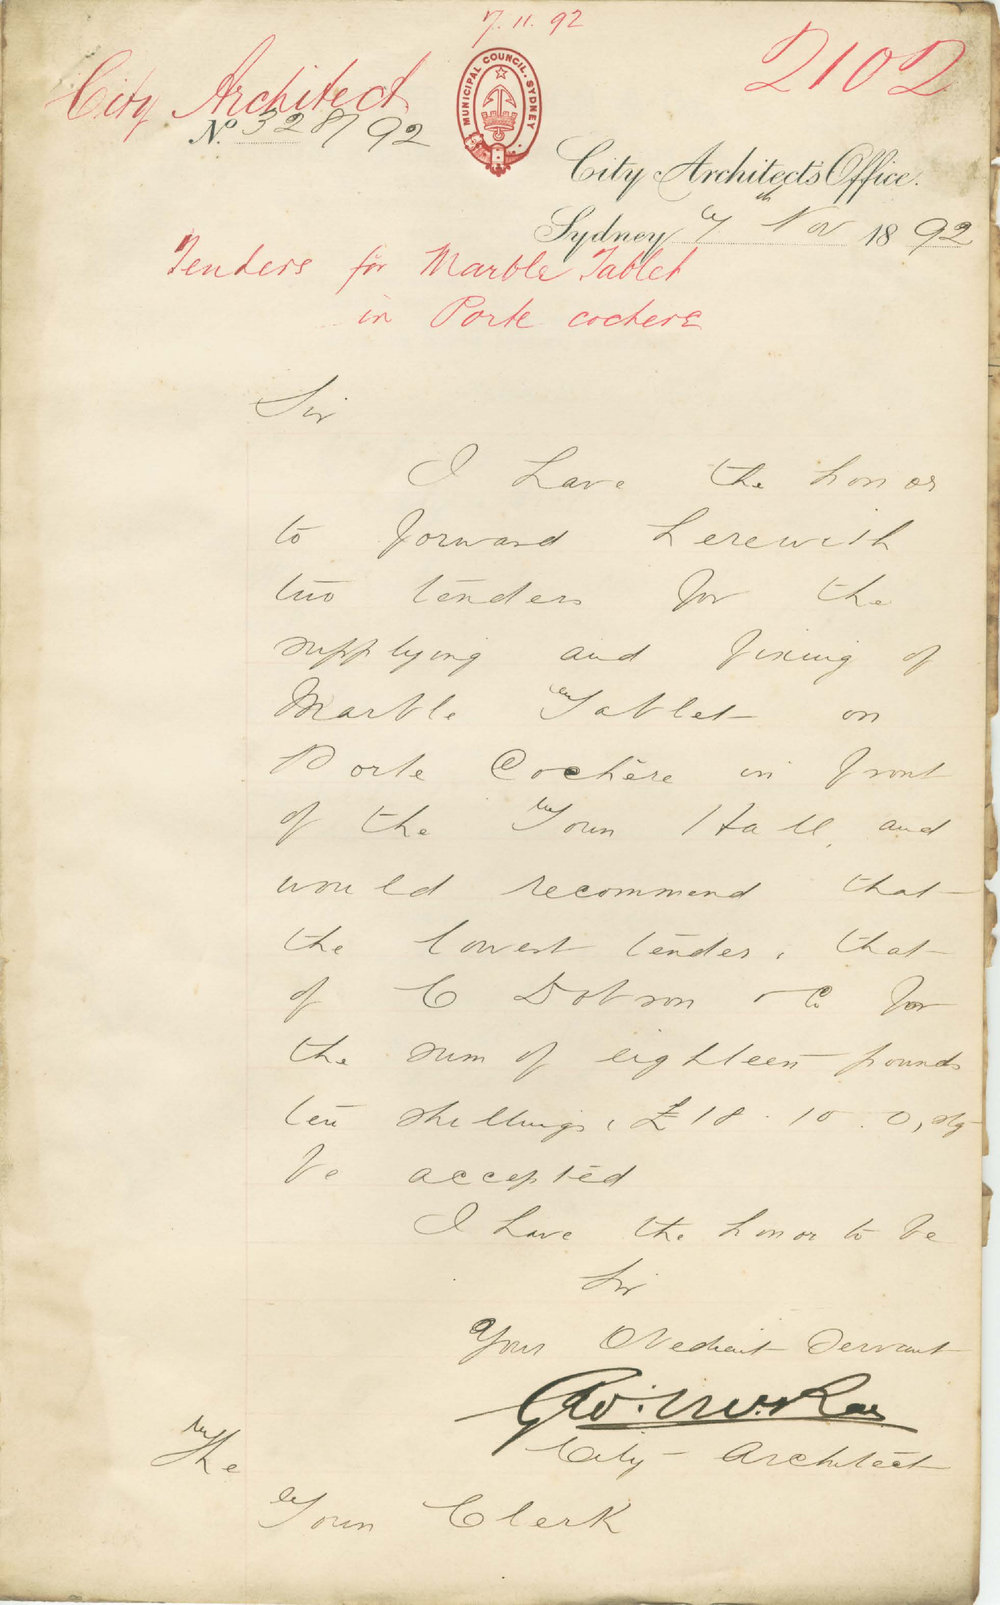 7.11.92
2102
City Architect
MUNICIPAL COUNCIL. SYDNEY
No. 328/92
City Architect's Office.
Sydney 7th Nov 1892
Tenders for Marble Tablet
in Porte cochere
Sir
I have the honor
to forward herewith
two tenders for the
supplying and fixing of
Marble Tablet on
Porte Cochère in front
of the Town Hall, and
would recommend that
the lowest tender, that
of C Dobson & Co for
the sum of eighteen pounds
ten shillings, £18.10.0, stg
be accepted
I have the honor to be
Sir
Your Obedient Servant
Geo. McRae
City Architect
The
Town Clerk